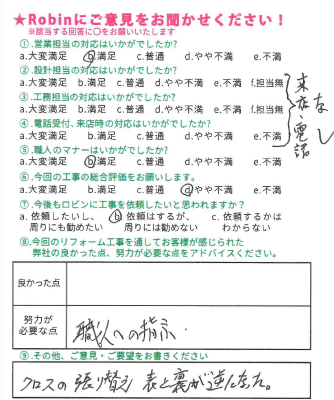 ★Robinにご意見をお聞かせください!
※該当する回答に〇をお願いいたします
①.営業担当の対応はいかがでしたか?
a.大変満足 b.満足 c.普通 d.やや不満 e.不満
②.設計担当の対応はいかがでしたか?
a.大変満足 b.満足 c.普通 d.やや不満 e.不満 f.担当無
③.工務担当の対応はいかがでしたか?
a.大変満足 b.満足 c.普通 d.やや不満 e.不満 f.担当無
④.電話受付、来店時の対応はいかがでしたか?
a.大変満足 b.満足 c.普通 d.やや不満 e.不満
来店・電話
なし
⑤.職人のマナーはいかがでしたか?
a.大変満足 b.満足 c.普通 d.やや不満 e.不満
⑥.今回の工事の総合評価をお願いします。
a.大変満足 b.満足 c.普通 d.やや不満 e.不満
⑦.今後もロビンに工事を依頼したいと思われますか?
a. 依頼したいし、 b 依頼はするが、 c. 依頼するかは
周りにも勧めたい 周りには勧めない わからない
⑧.今回のリフォーム工事を通してお客様が感じられた
弊社の良かった点、努力が必要な点をアドバイスください。
良かった点
努力が
必要な点
職人への指示.
⑨.その他、ご意見・ご要望をお書きください
クロスの張り替え 表と裏が逆になった。